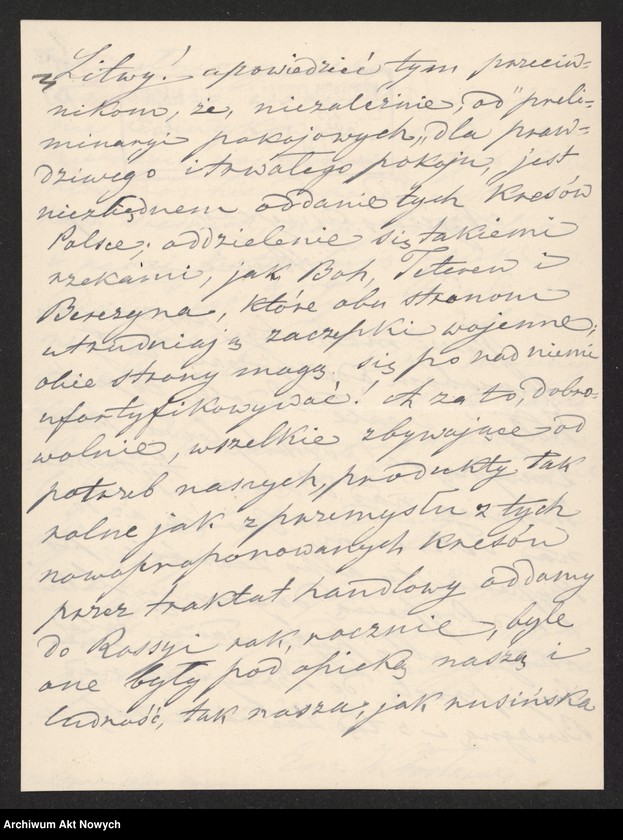 z Litwy! apowiedzieć tym przeciw=
nikom, że, niezależnie, od "preli=
minaryi pokojowych," dla praw=
dziwego i trwałego pokoju, jest
niezbędnem oddanie tych Kresów
Polsce, oddzielenie się takiemi
rzekami, jak Boh, Teterew i
Berezyna, które obu stronom
utrudniają zaczepki wojenne;
obie strony mogą się po nad niemi
ufortyfikowywać! A za to, dobro=
wolnie, wszelkie zbywające od
potrzeb naszych, produkty tak
rolne jak z przemysłu z tych
nowoproponowanych Kresów
przez traktat handlowy oddamy
do Rossyi rok, rocznie, byle
one były pod opieką naszą i
ludność, tak nasza, jak rusińska
Archiwum Akt Nowych